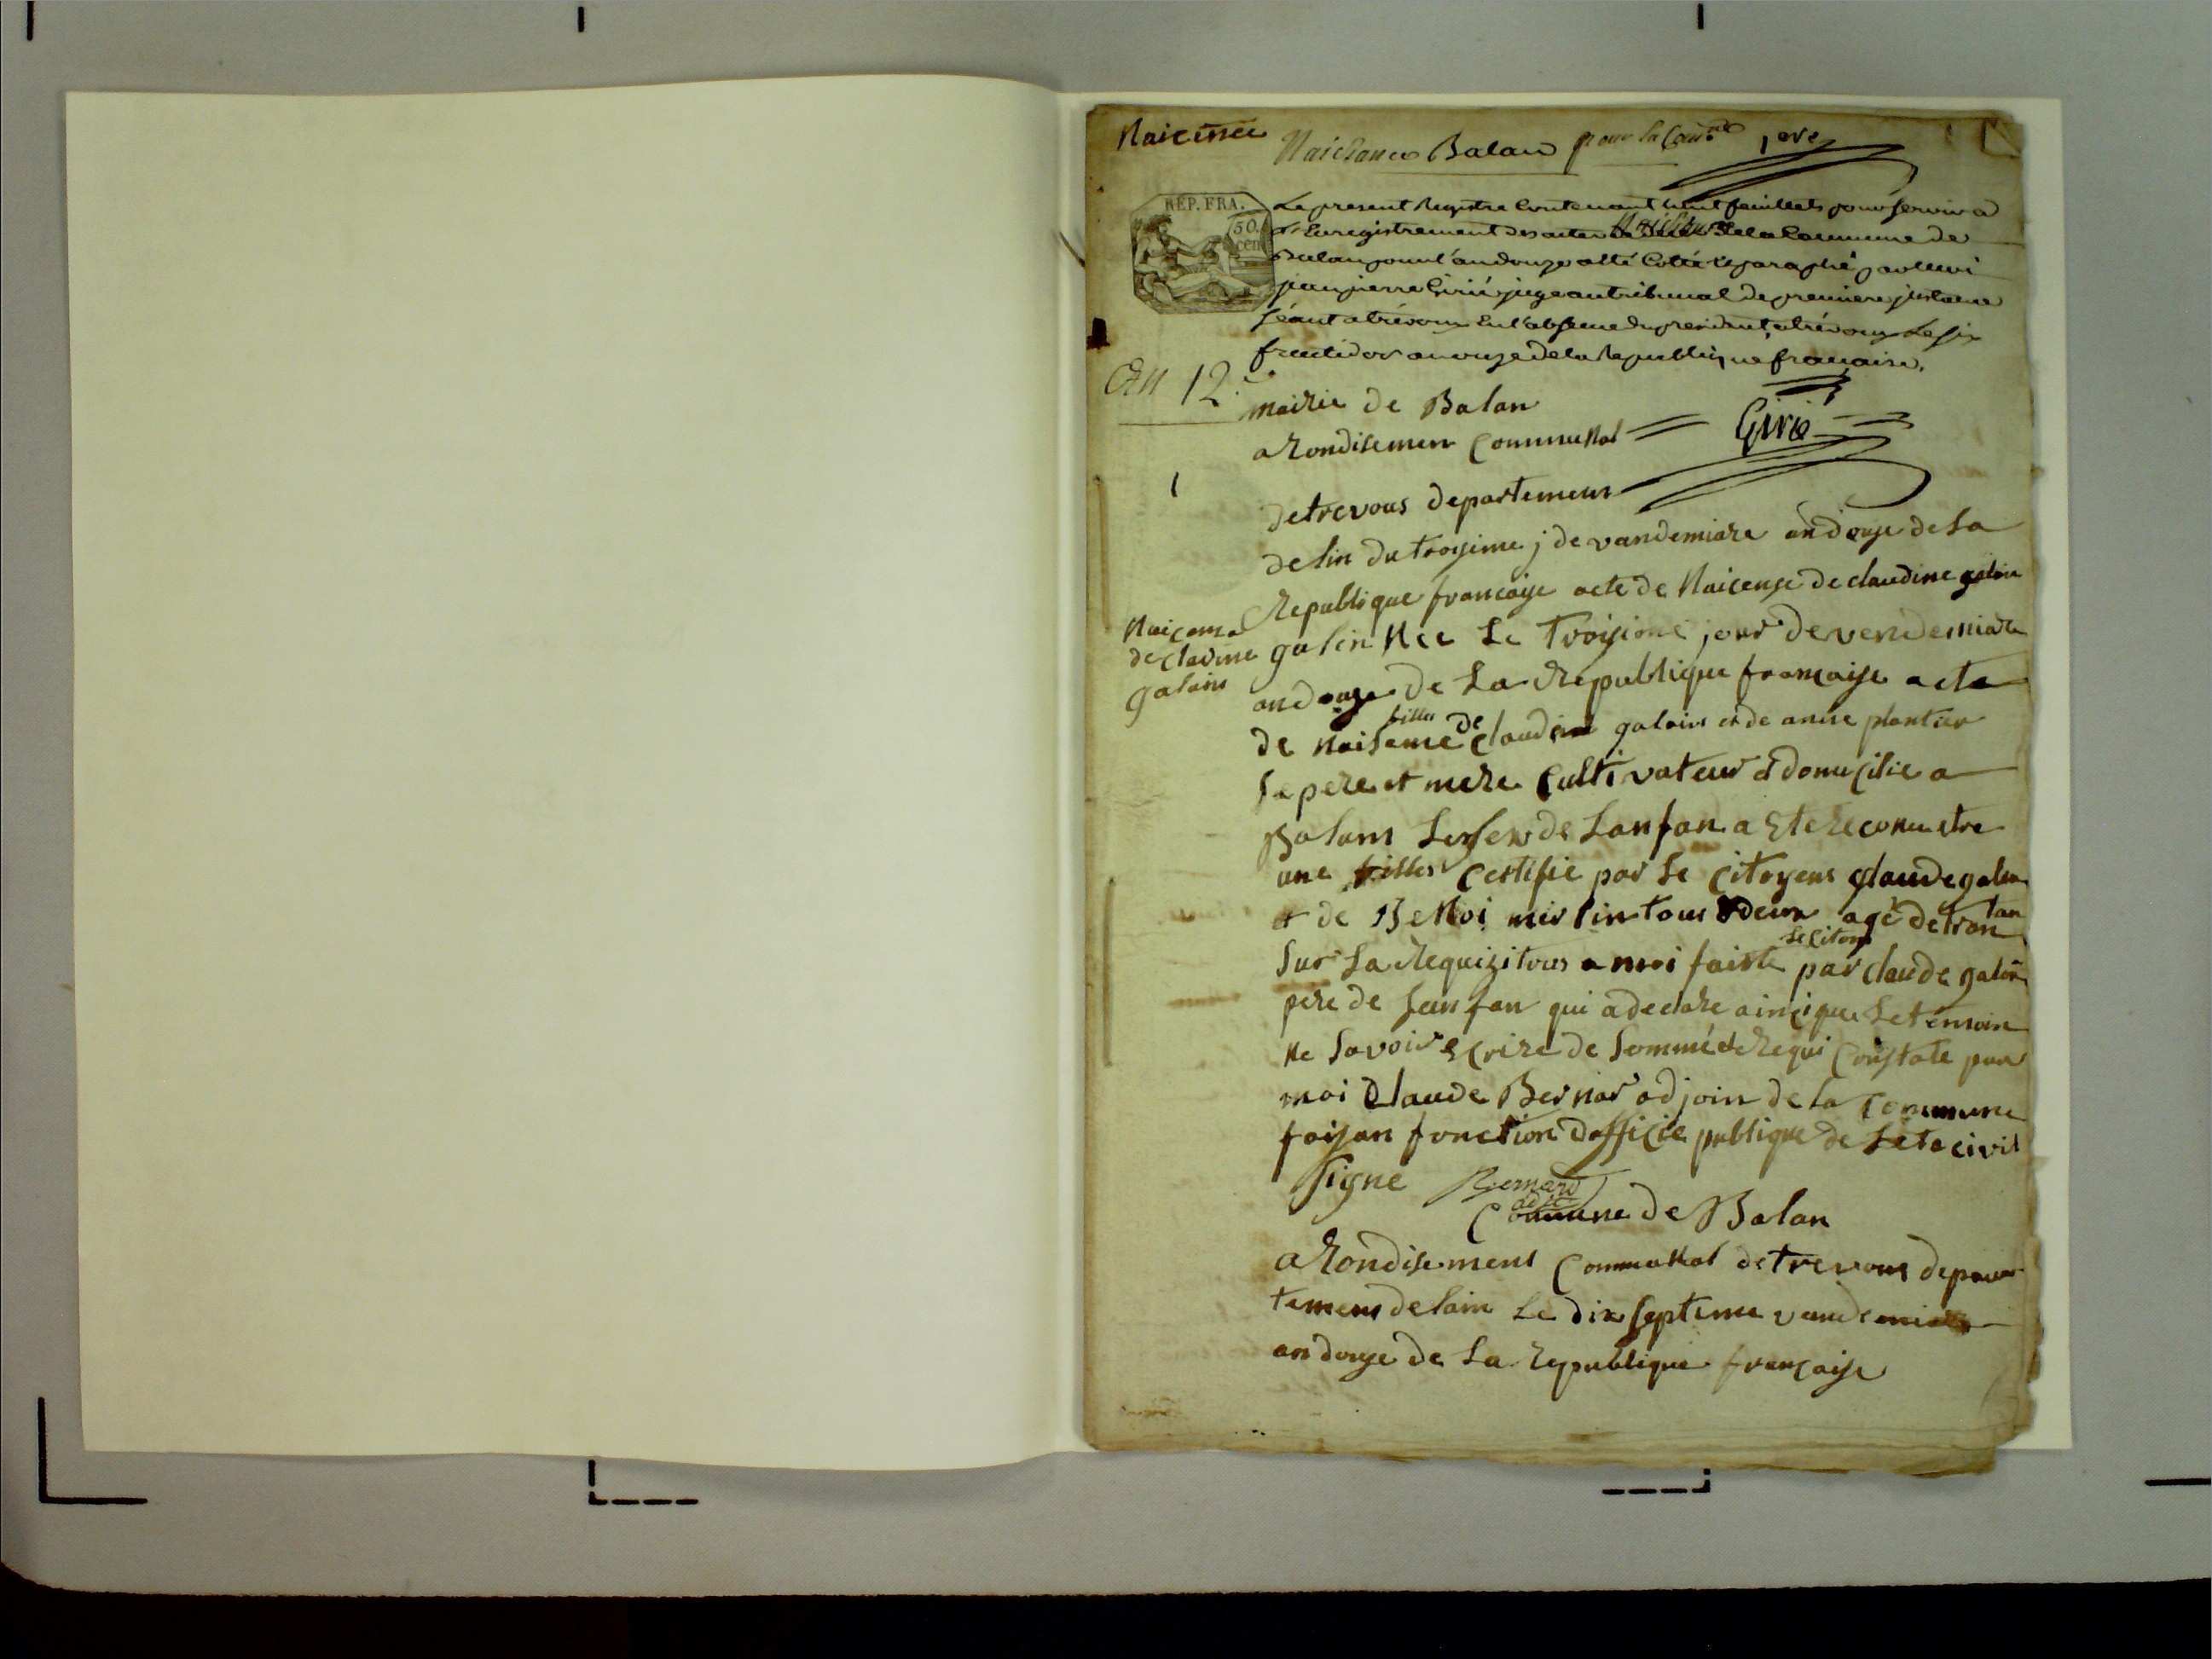 Naicence
Naissance Balan pour la Com.ne 1ere
REP. FRA.
50
cen
Le present Registre Contenant huit feuillets pour servir a
L'Enregistrement des actes de Naissance de la Commune de
Balan pour l'an douze a été Cotté et paraphé par nous
jean pierre Girié juge au tribunal de premiere jnstance
séant a trévoux En l'absence du president, a trévoux Le six
fructidor an onze de la Republique française.
An 12.
mairie de Balan
a Rondisemen Communal
Girié
1
de trevous departemens
de lin du troysime j de vandemiare an douze de la
Republique francaise acte de Naicense de claudine galin
Naicense
de cladine
galain
galin Nee Le Troysime jour de vendemiare
an douze de La Republique françaîse acte
de Naisance filles de claudin galain et de anne plantier
se pere et mere Cultivateur d domicilie a
Balans Le sex de Lanfan a Ete Reconu etre
une filles Certifie par le Citoyens claude galin
& de Benoi mirlin tous deux agé de tran tan
sur La Requizitoir a moi faiste par le Citoy claude galin
pere de Lan fan qui a declare ainçi que Le témoin
Ne savoir Ecrire de sommé de Requi Constate par
moi Claude Bernar adjoin de la Commune
faisan fonction d officie publique de Leta civil
signe Bernard
adjt
Commune de Balan
a Rondisement Communal de trevous depar
temens de lain Le dix septeme vandemiare
an douze de La Republique française